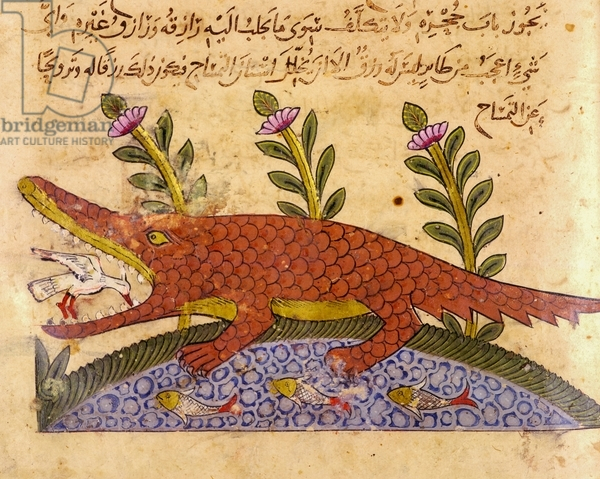 يجوز باب حجره ولا يتكلف سوى ما جلب اليه رازقه ورازق غيره واى
شيء اعجب من طائر ليس له رزق الا ان يخلل اسنان التمساح فيكون ذلك رزقا له وترويحا
عن التمساح
bridgeman
ART CULTURE HISTORY